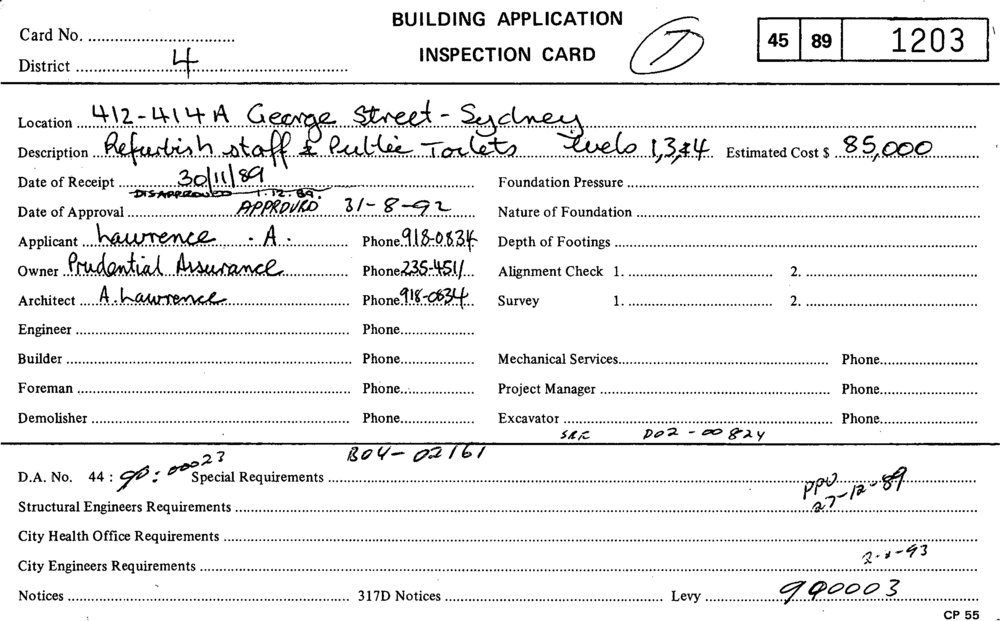 BUILDING APPLICATION
INSPECTION CARD
Card No.
District 4
45 89 1203
Location 412-414A George Street - Sydney
Description Refurbish staff & Public Toilets levels 1,3&4 Estimated Cost $ 85,000
Date of Receipt 30/11/89 Foundation Pressure
DISAPPROVED 1.12.89.
Date of Approval APPROVED 31-8-92 Nature of Foundation
Applicant Lawrence . A . Phone 918-0834 Depth of Footings
Owner Prudential Assurance Phone 235-451/ Alignment Check 1. 2.
Architect A. Lawrence Phone 918-0834 Survey 1. 2.
Engineer Phone
Builder Phone Mechanical Services Phone
Foreman Phone Project Manager Phone
Demolisher Phone Excavator Phone
D02-00824
B04-02161
D.A. No. 44 : 90 : 00023 Special Requirements
PPU
27-12-89
Structural Engineers Requirements
City Health Office Requirements
City Engineers Requirements
Notices 317D Notices Levy 900003
CP 55